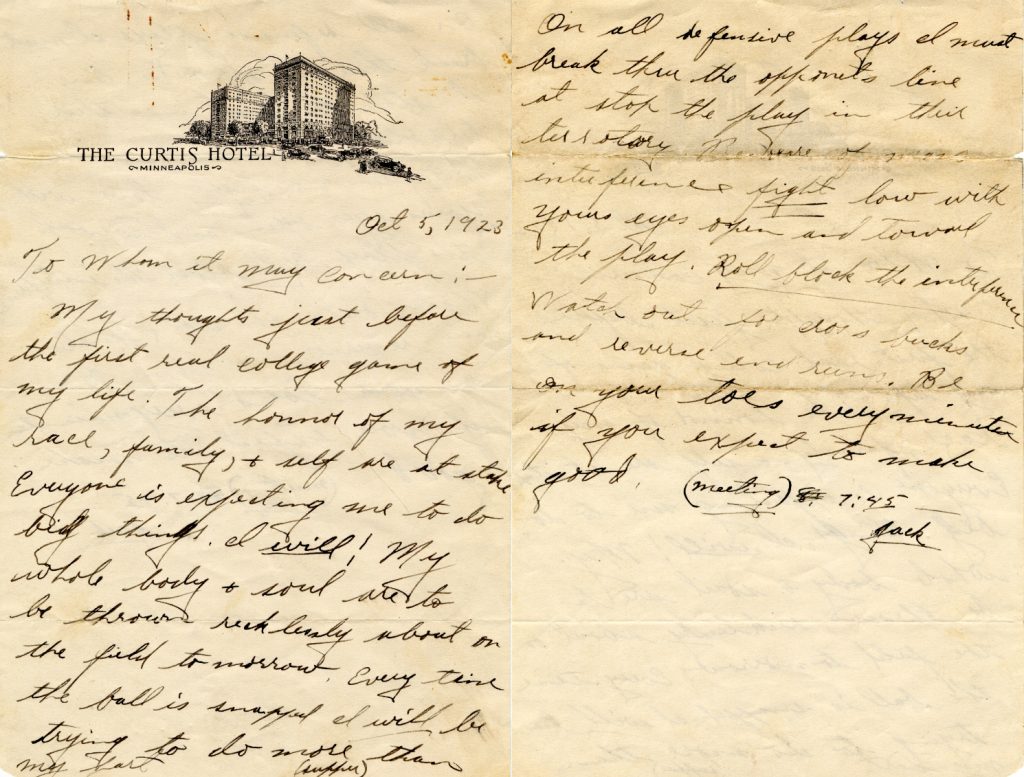 THE CURTIS HOTEL
MINNEAPOLIS
Oct 5, 1923
To Whom it may concern :-
My thoughts just before
the first real college game of
my life. The honnor of my
race, family, + self are at stake
Everyone is expecting me to do
big things. I will! My
whole body + soul are to
be thrown recklessly about on
the field tomorrow. Every time
the ball is snapped I will be
trying to do more than
my part (supper)
On all defensive plays I must
break thru the opponets line
at stop the play in their
terrotory Beware of mass
interference fight low with
yours eyes open and toward
the play. Roll block the interference
Watch out for cross bucks
and reverse end runs. Be
on your toes every minute
if you expect to make
good. (meeting) 7:45
Jack